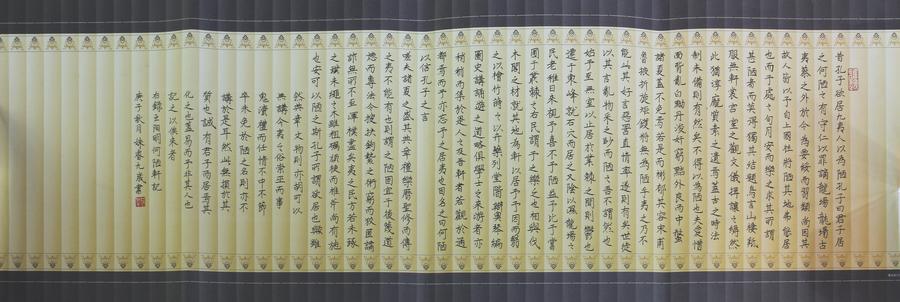 昔孔子欲居九夷人以為陋孔子曰君子居
之何陋之有守仁以罪謫龍場龍場古
夷蔡之外於今為要綏而習類尚因其
故人皆以予自上國往將陋其地弗能居
也而予處之旬月安而樂之求其所謂
甚陋者而莫得獨其結題鳥言山棲羝
服無軒裳宮室之觀文儀揖讓之縟然
此猶淳龐質素之遺焉蓋古之時法
制未備則有然矣不得以為陋也夫愛憎
面背亂白黝丹浚奸窮黠外良而中螫
諸夏蓋不免焉若是而彬郁其容宋甫
魯掖折旋矩矱將無為陋乎夷之人乃不
能此其好言惡詈直情率遂則有矣世徒
以其言辭物采之眇而陋之吾不謂然也
始予至無室以止居於叢棘之間則鬱也
遷於東峰就石穴而居之又陰以濕龍場之
民老稚日來視予喜不予陋益予比予嘗
圃於叢棘之右民謂予之樂之也相與伐
木閣之材就其地為軒以居予予因而翳
之以檜竹蒔之以卉藥列堂階辯室奧琴編
圖史講誦遊適之道略俱學士之來遊者亦
稍稍而集於是人之及吾軒者若觀於通
都焉而予亦忘予之居夷也因名之曰何陋
以信孔子之言
嗟夫諸夏之盛其典章禮樂歷聖修而傳
之夷不能有也則謂之陋固宜於後蔑道
德而專法令搜抉鉤縶之術窮而狡匿譎
詐無所不至渾樸盡矣夷之民方若未琢
之璞未繩之木雖粗礪頑梗而椎斧尚有施
也安可以陋之斯孔子所謂欲居也歟雖
然典章文物則亦胡可以
無講今夷之俗崇巫而事
鬼瀆禮而任情不中不節
卒未免於陋之名則亦不
講於是耳然此無損於其
質也誠有君子而居焉其
化之也蓋易而予非其人也
記之以俟來者
右錄王陽明何陋軒記
庚子秋月